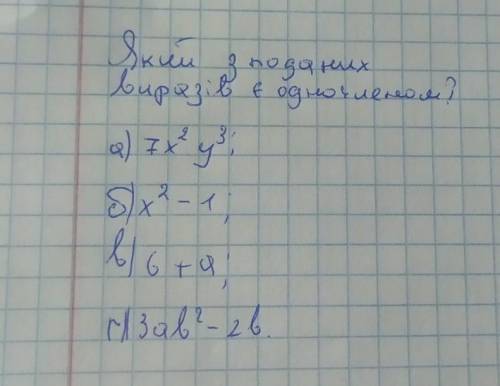 Який з поданих
виразів є одночленом?
а) 7x² y³;
б) x² - 1;
в) 6 + a;
г) 3ab² - 2b.